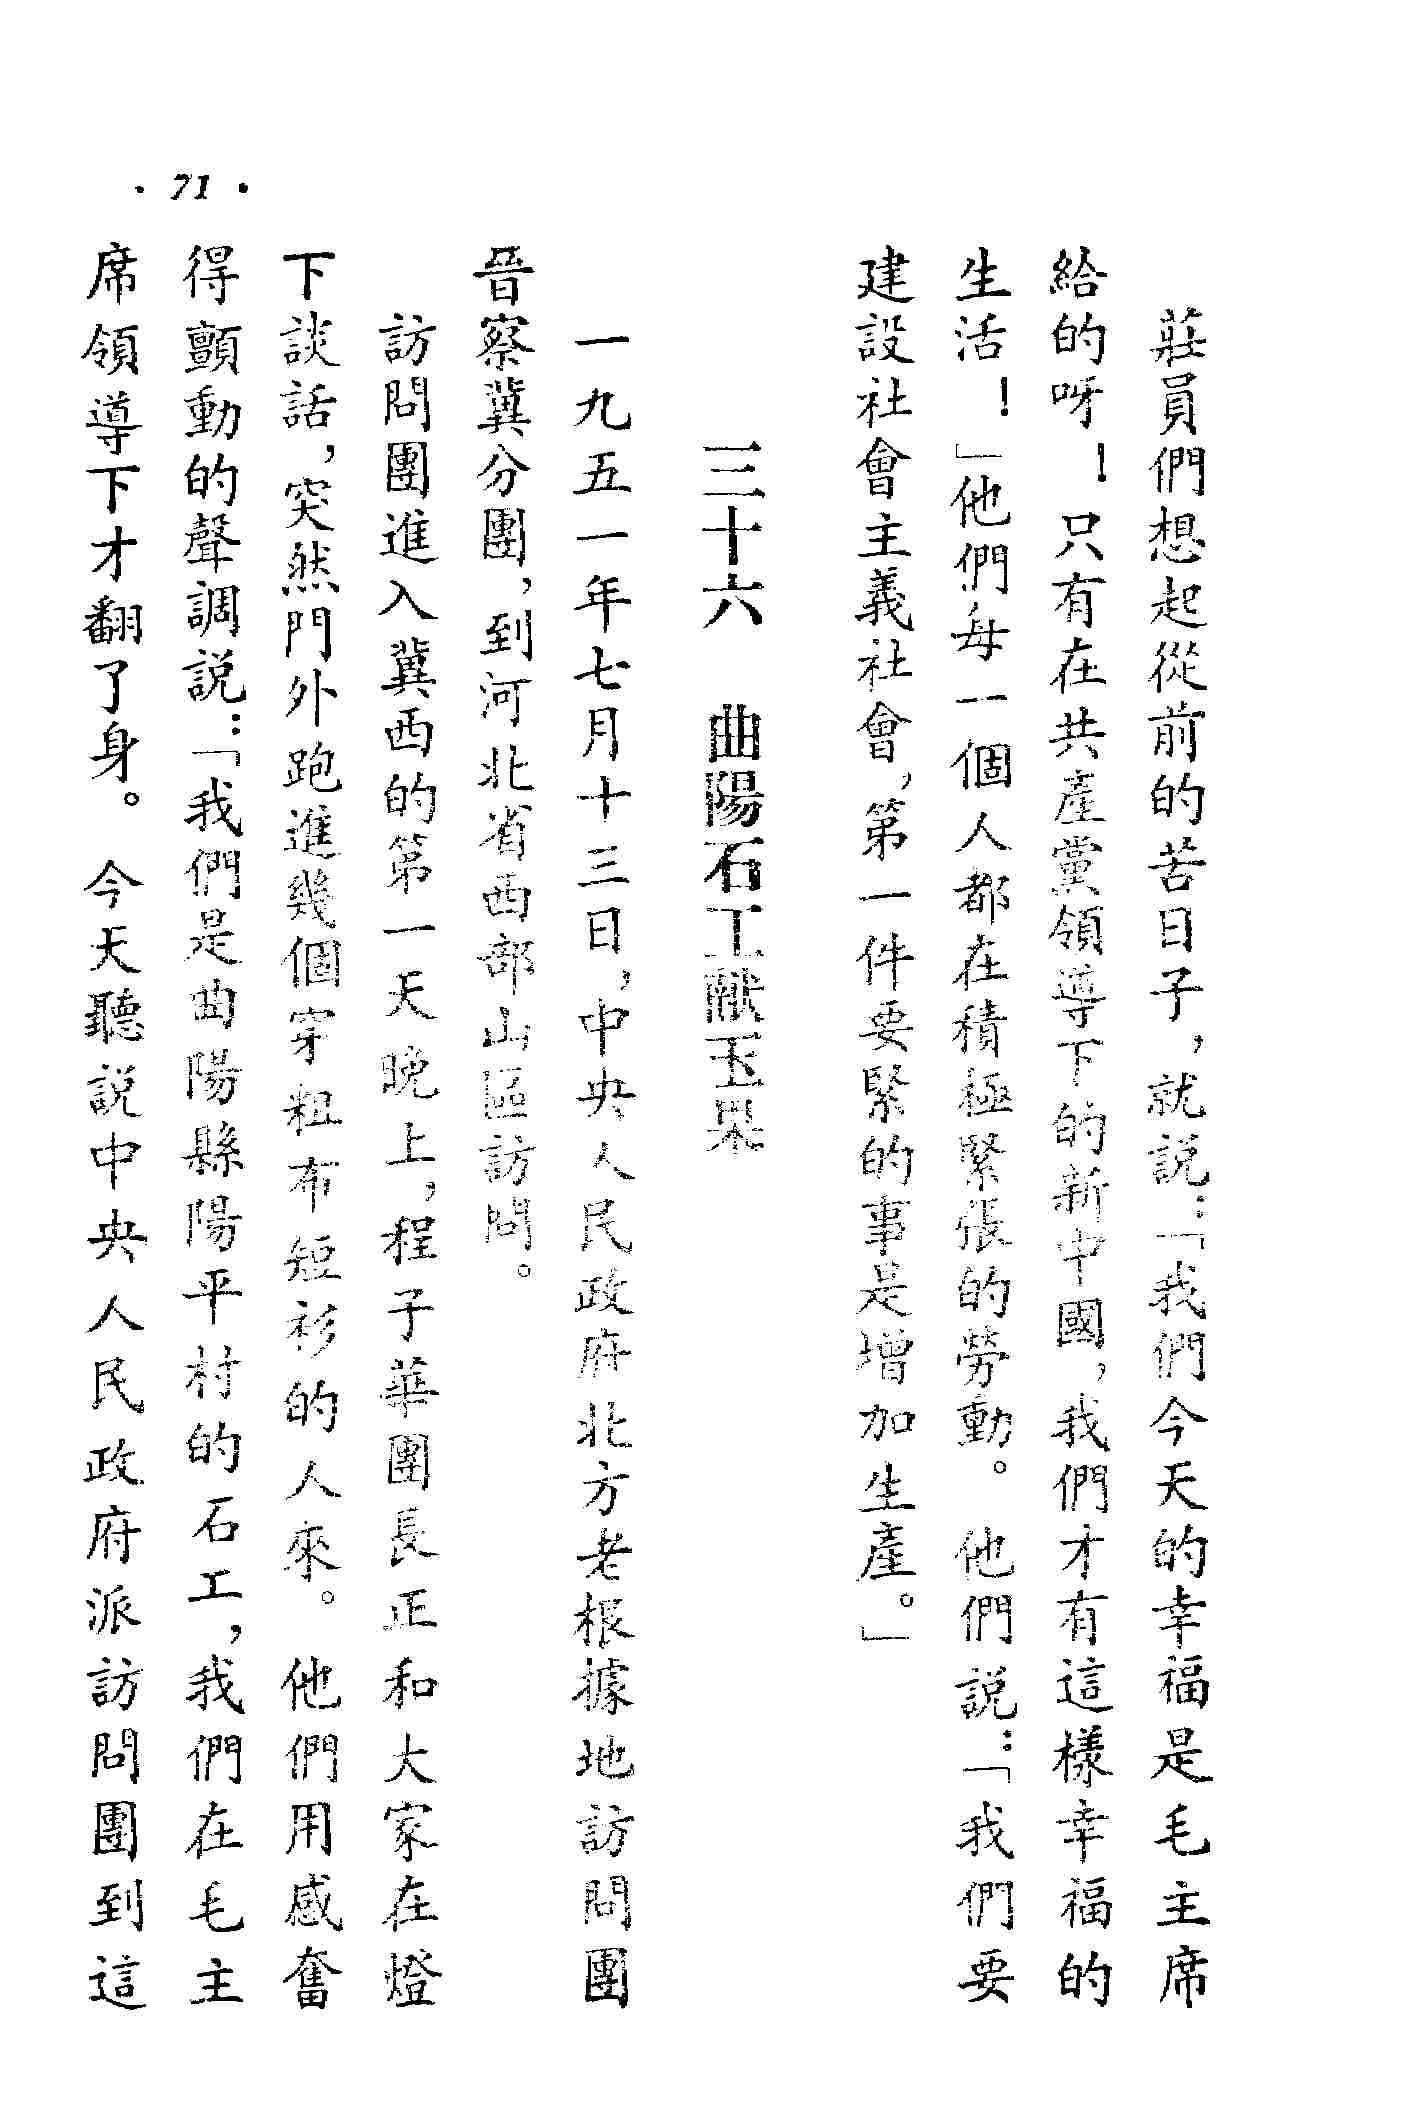 莊員們想起從前的苦日子，就説：「我們今天的幸福是毛主席
給的呀！只有在共產黨領導下的新中國，我們才有這樣幸福的
生活！」他們每一個人都在積極緊張的勞動。他們説：「我們要
建設社會主義社會，第一件要緊的事是增加生產。」
三十六　曲陽石工献玉果
一九五一年七月十三日，中央人民政府北方老根據地訪問團
晉察冀分團，到河北省西部山區訪問。
訪問團進入冀西的第一天晚上，程子華團長正和大家在燈
下談話，突然門外跑進幾個穿粗布短衫的人來。他們用感奮
得顫動的聲調説：「我們是曲陽縣陽平村的石工，我們在毛主
席領導下才翻了身。今天聽説中央人民政府派訪問團到這
· 71 ·